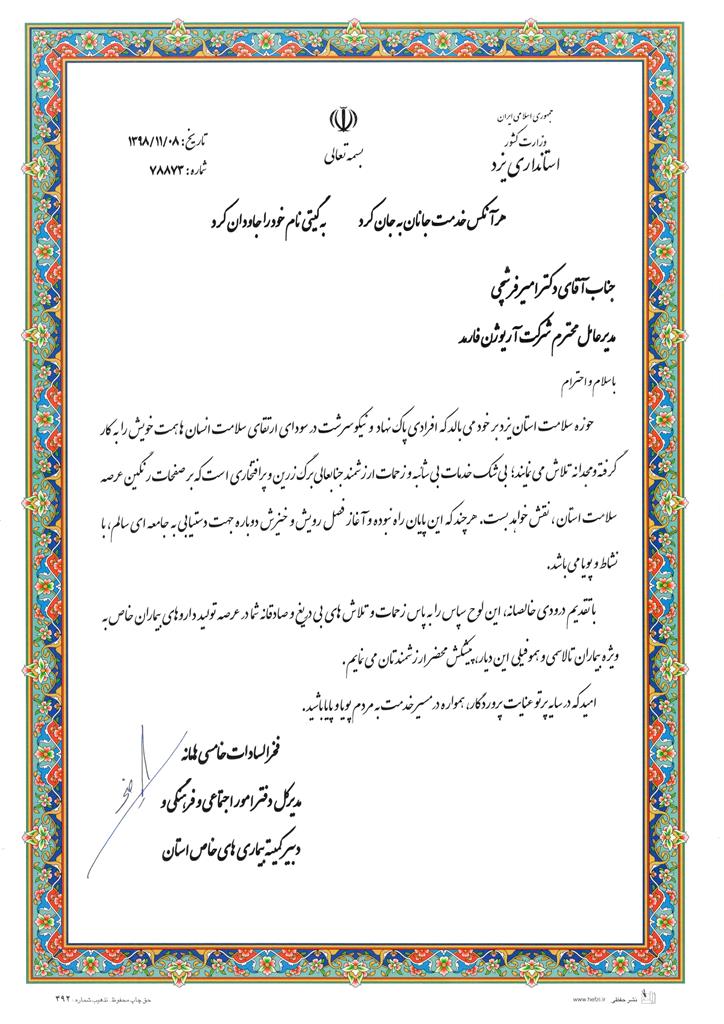 جمهوری اسلامی ایران
وزارت کشور
استانداری یزد
بسمه تعالی
تاریخ: ۱۳۹۸/۱۱/۰۸
شماره: ۷۸۸۷۳
هر آنکس خدمت جانان به جان کرد به گیتی نام خود را جاودان کرد
جناب آقای دکتر امیر فرشچی
مدیر عامل محترم شرکت آریوژن فارمد
با سلام و احترام
حوزه سلامت استان یزد بر خود می بالد که افرادی پاک نهاد و نیکو سرشت در سودای ارتقای سلامت انسان ها همت خویش را به کار
گرفته و مجدانه تلاش می نمایند؛ بی شک خدمات بی شائبه و زحمات ارزشمند جنابعالی برگ زرین و پر افتخاری است که بر صفحات رنگین عرصه
سلامت استان، نقش خواهد بست. هر چند که این پایان راه نبوده و آغاز فصل رویش و خیزش دوباره جهت دستیابی به جامعه ای سالم، با
نشاط و پویا می باشد.
با تقدیم درودی خالصانه، این لوح سپاس را به پاس زحمات و تلاش های بی دریغ و صادقانه شما در عرصه تولید داروهای بیماران خاص به
ویژه بیماران تالاسمی و هموفیلی این دیار، پیشکش محضر ارزشمندتان می نمایم.
امید که در سایه پرتو عنایت پروردگار، همواره در مسیر خدمت به مردم پویا و پایا باشید.
فخرالسادات خامسی هامانه
مدیرکل دفتر امور اجتماعی و فرهنگی و
دبیر کمیته بیماری های خاص استان
نشر حفظی www.hefzi.ir
حق چاپ محفوظ. تذهیب شماره: ۴۹۲